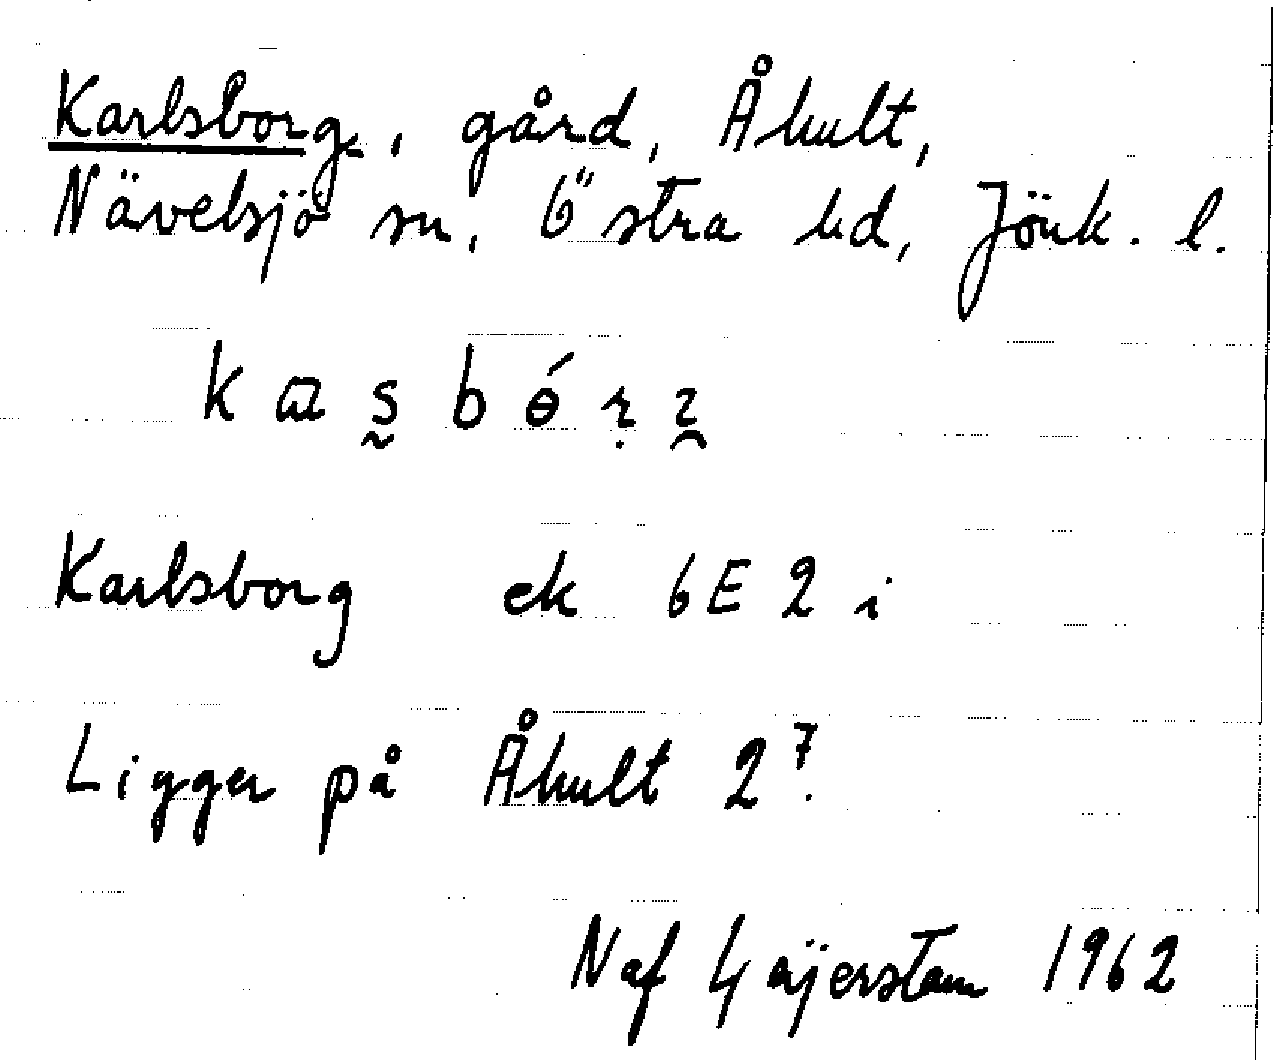 Karlsborg, gård, Åhult,
Nävelsjö sn, Östra hd, Jönk. l.
Karlsborg ek 6E 2 i
Ligger på Åhult 2⁷.
N af Geijerstam 1962